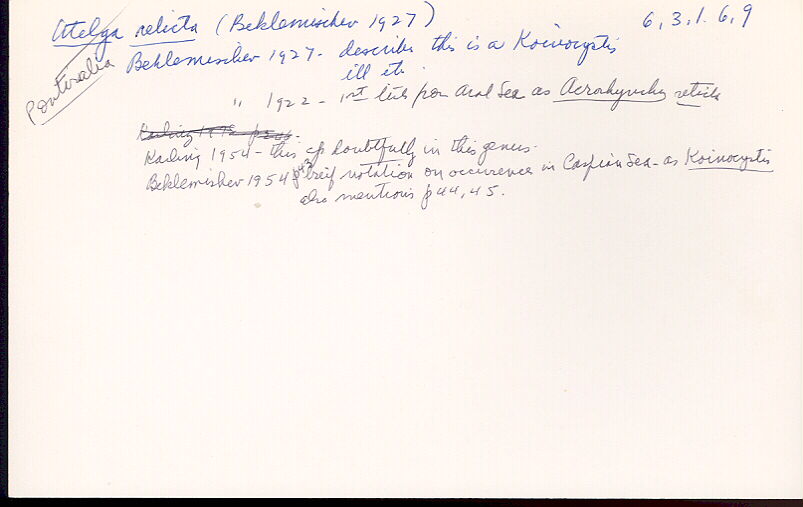 Utelga relicta (Beklemischev 1927) 6, 3, 1. 6, 9
Pontaralia
Beklemischev 1927 - describes this is a Koinocystis
ill etc.
" 1922 - 1st lists from Aral Sea as Acrorhynchus relicta
Karling 1954 - this sp doubtfully in this genus.
Beklemishev 1954 p43 breif notation on occurrence in Caspian Sea - as Koinocystis
also mentions p 44, 45.